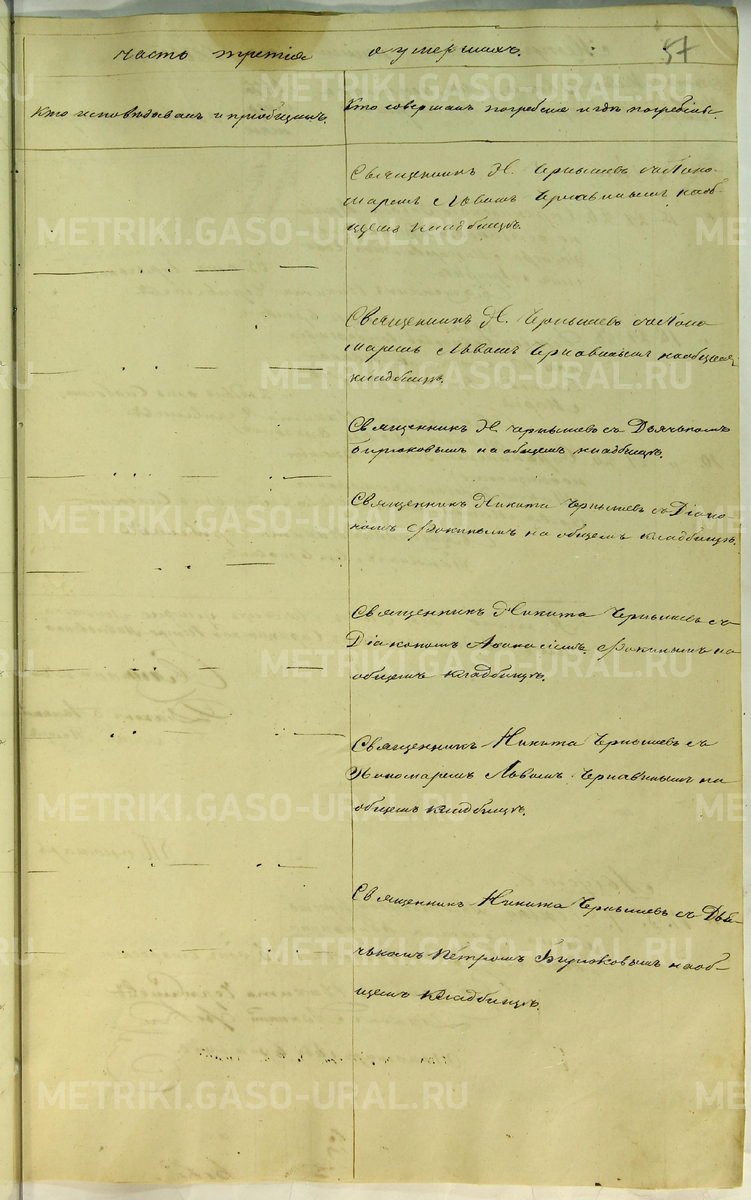 часть третія о умершихъ. 57
Кто исповѣдывалъ и пріобщилъ.
Кто совершалъ погребеніе и гдѣ погребены.
Священникъ Н. Чернышевъ съ Поно-
маремъ Львомъ Чернавинымъ на об-
щемъ кладбищѣ.
Священникъ Н. Чернышевъ съ Поно
маремъ Львомъ Чернавинымъ на общемъ
кладбищѣ.
Священникъ Н. Чернышевъ съ Дьячкомъ
Бирюковымъ на общемъ кладбищѣ.
Священникъ Никита Чернышевъ съ Діако-
номъ Фокинымъ на общемъ кладбищѣ.
Священникъ Никита Чернышевъ съ
Діакономъ Фокинымъ на
общемъ кладбищѣ.
Священникъ Никита Чернышевъ съ
Пономаремъ Львомъ Чернавинымъ на
общемъ кладбищѣ.
Священникъ Никита Чернышевъ съ Дья-
чькомъ Петромъ Бирюковымъ на об-
щемъ кладбищѣ.
METRIKI.GASO-URAL.RU